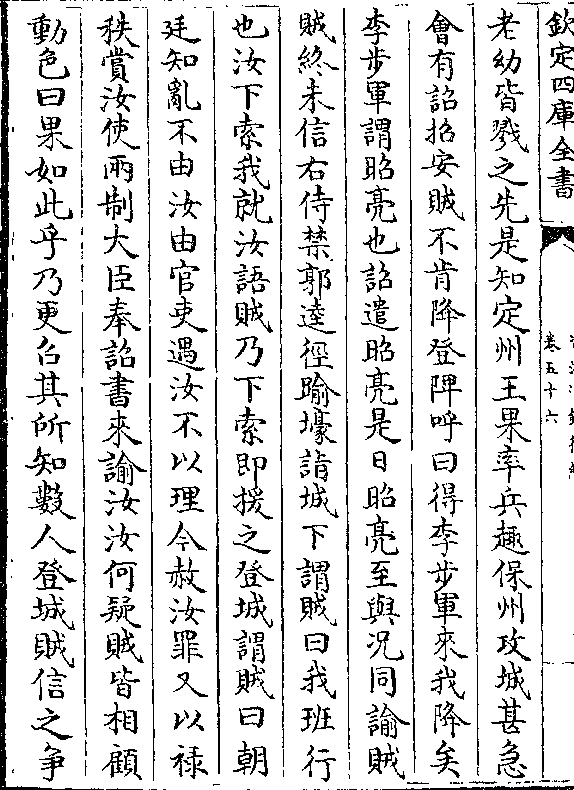 欽定四庫全書
卷五十六
老幼皆戮之先是知定州王果率兵趣保州攻城甚急
會有詔招安賊不肯降登陴呼曰得李步軍來我降矣
李步軍謂昭亮也詔遣昭亮是日昭亮至與況同諭賊
賊終未信右侍禁郭逵徑踰壕詣城下謂賊曰我班行
也汝下索我就汝語賊乃下索即援之登城謂賊曰朝
廷知亂不由汝由官吏遇汝不以理今赦汝罪又以祿
秩賞汝使兩制大臣奉詔書來諭汝汝何疑賊皆相顧
動色曰果如此乎乃更召其所知數人登城賊信之爭